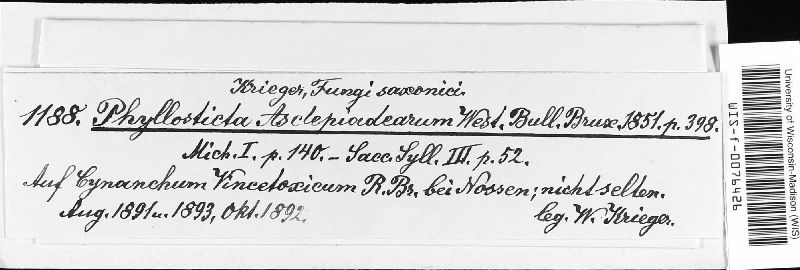 Krieger, Fungi saxonici.
1188. Phyllosticta Asclepiadearum West. Bull. Brux. 1851. p. 398.
Mich. I. p. 140. – Sacc. Syll. III. p. 52.
Auf Cynanchum Vincetoxicum R. Br. bei Nossen; nicht selten.
Aug. 1891 u. 1893, Okt. 1892.
leg. W. Krieger.
WIS-f-0076426
University of Wisconsin-Madison (WIS)